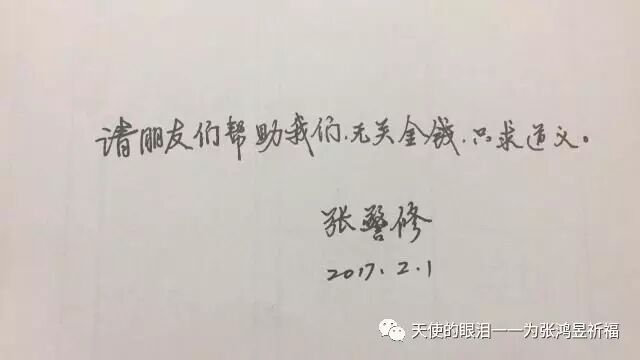 请朋友们帮助我们.无关金钱.只求道义。
张警修
2017.2.1
天使的眼泪——为张鸿昱祈福